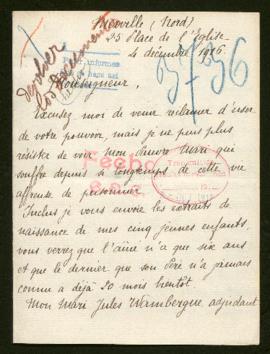 Merville (Nord)
25 Place de l'Eglise
4 décembre 1916
Monseigneur,
Excusez moi de venir réclamer d'user
de votre pouvoir, mais je ne puis plus
résister de voir mon pauvre Mari qui
souffre depuis si longtemps de cette vie
affreuse de prisonnier
Inclus je vous envoie les extraits de
naissance de mes cinq jeunes enfants,
vous verrez que l'aîné n'a que six ans
et que le dernier que son père n'a jamais
connu a déjà 20 mois bientôt.
Mon Mari Jules Wambergue, adjudant
Fecha